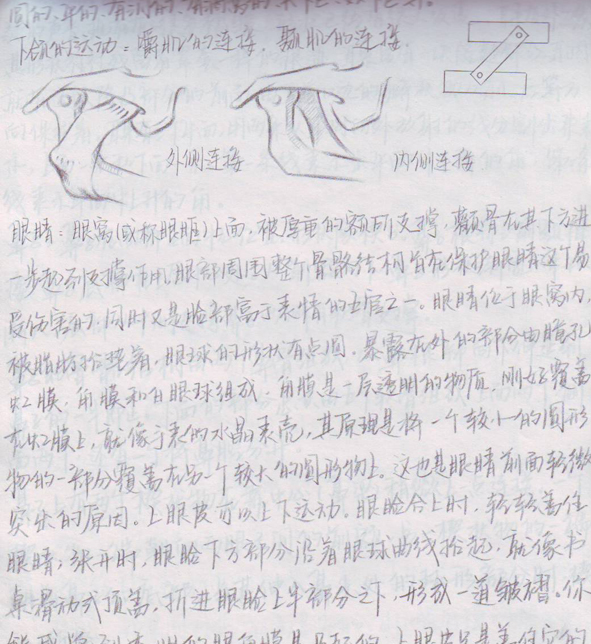 下颌的运动：嚼肌的连接，颞肌的连接
外侧连接
内侧连接
眼睛：眼窝（或称眼眶）上面，被厚重的额所支撑，颧骨在其下方进
一步起到支撑作用。眼部周围整个骨骼结构旨在保护眼睛这个易
受伤害的，同时又是脸部富于表情的五官之一。眼睛位于眼窝内，
被脂肪给垫着，眼球的形状有点圆，暴露在外的部分由瞳孔
虹膜、角膜和白眼球组成。角膜是一层透明的物质，刚好覆盖
在虹膜上，就像手表的水晶表壳，其原理是将一个较小的圆形
物的一部分覆盖在另一个较大的圆形物上。这也是眼睛前面轻微
突出的原因。上眼皮可以上下运动。眼睑合上时，轻轻盖住
眼睛，张开时，眼睑下方部分沿着眼球曲线抬起，就像书
桌滑动式顶盖，折进眼睑上半部分之下，形成一道皱褶。你